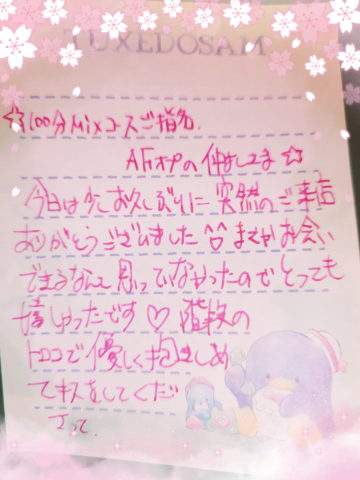 TUXEDOSAM
☆100分Mixコースご指名
AFオプの仲良しさま☆
今日は少しお久しぶりに 実際のご来店
ありがとうございました^^まさかお会い
できるなんて思っていなかったのでとっても
嬉しかったです♡ 階段の
トコロで優しく抱きしめ
てキスをしてくだ
さって.